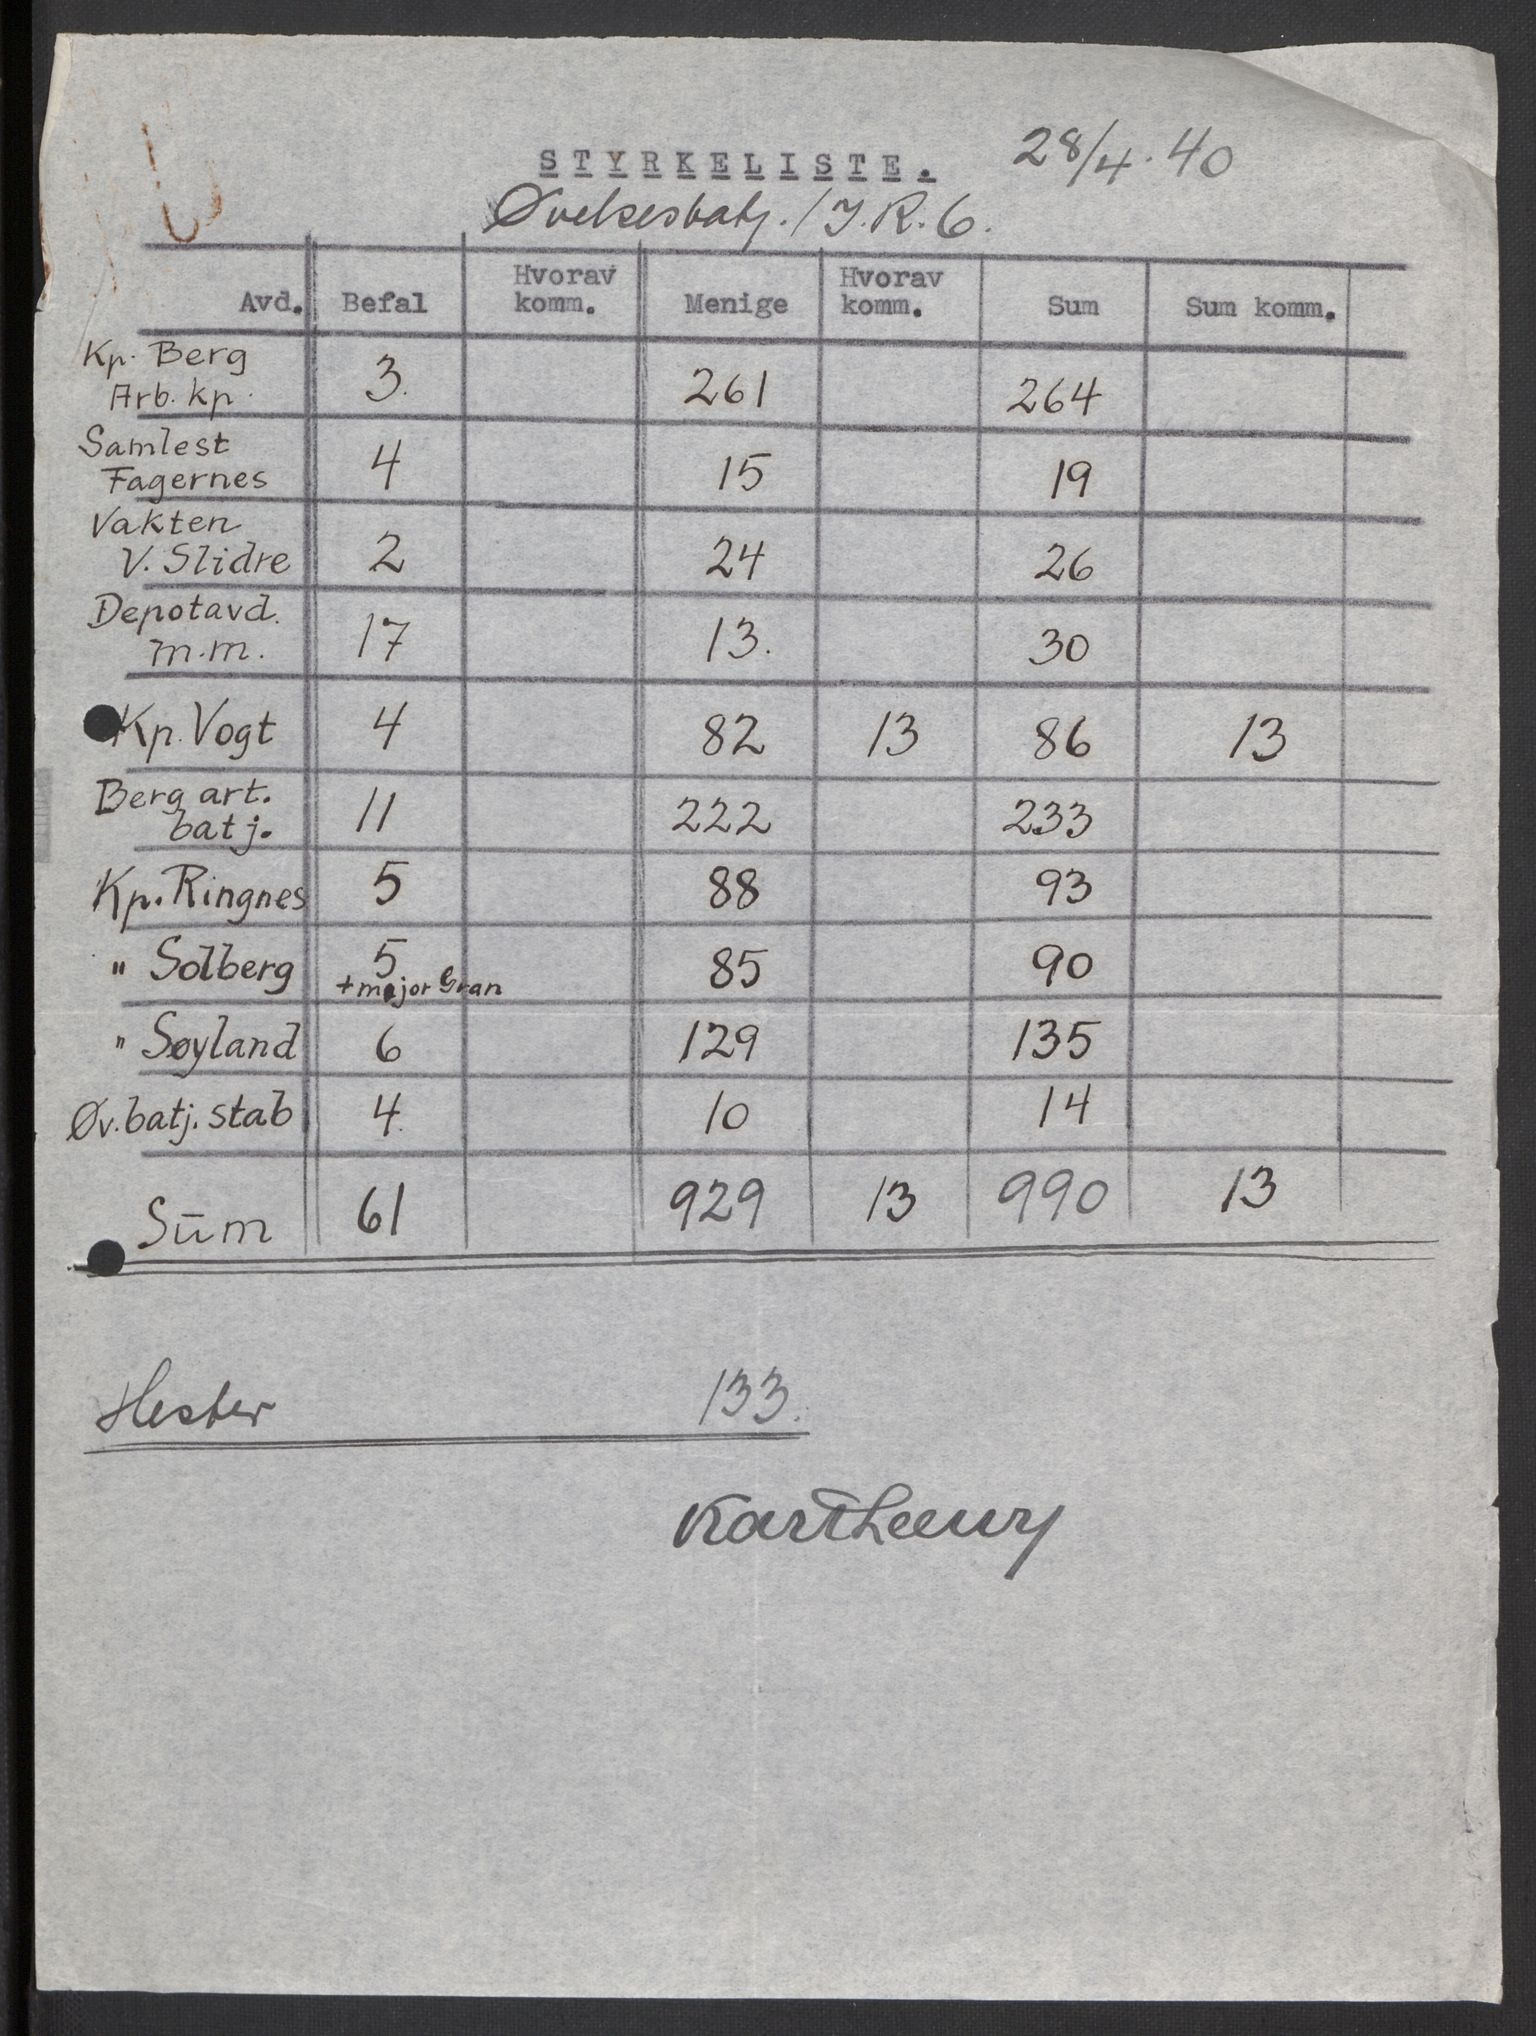 STYRKELISTE. 28/4.40
Øvelsesbatj. / J.R.6.
Avd. Befal Hvorav komm. Menige Hvorav komm. Sum Sum komm.
Kp. Berg
Arb. kp. 3. 261 264
Samlest
Fagernes 4 15 19
Vakten
V. Slidre 2 24 26
Depotavd.
m.m. 17 13. 30
Kp. Vogt 4 82 13 86 13
Berg art.
batj. 11 222 233
Kp. Ringnes 5 88 93
" Solberg 5 85 90
+ major Gran
" Søyland 6 129 135
Øv. batj. stab 4. 10 14
Sum 61 929 13 990 13
Hester 133.